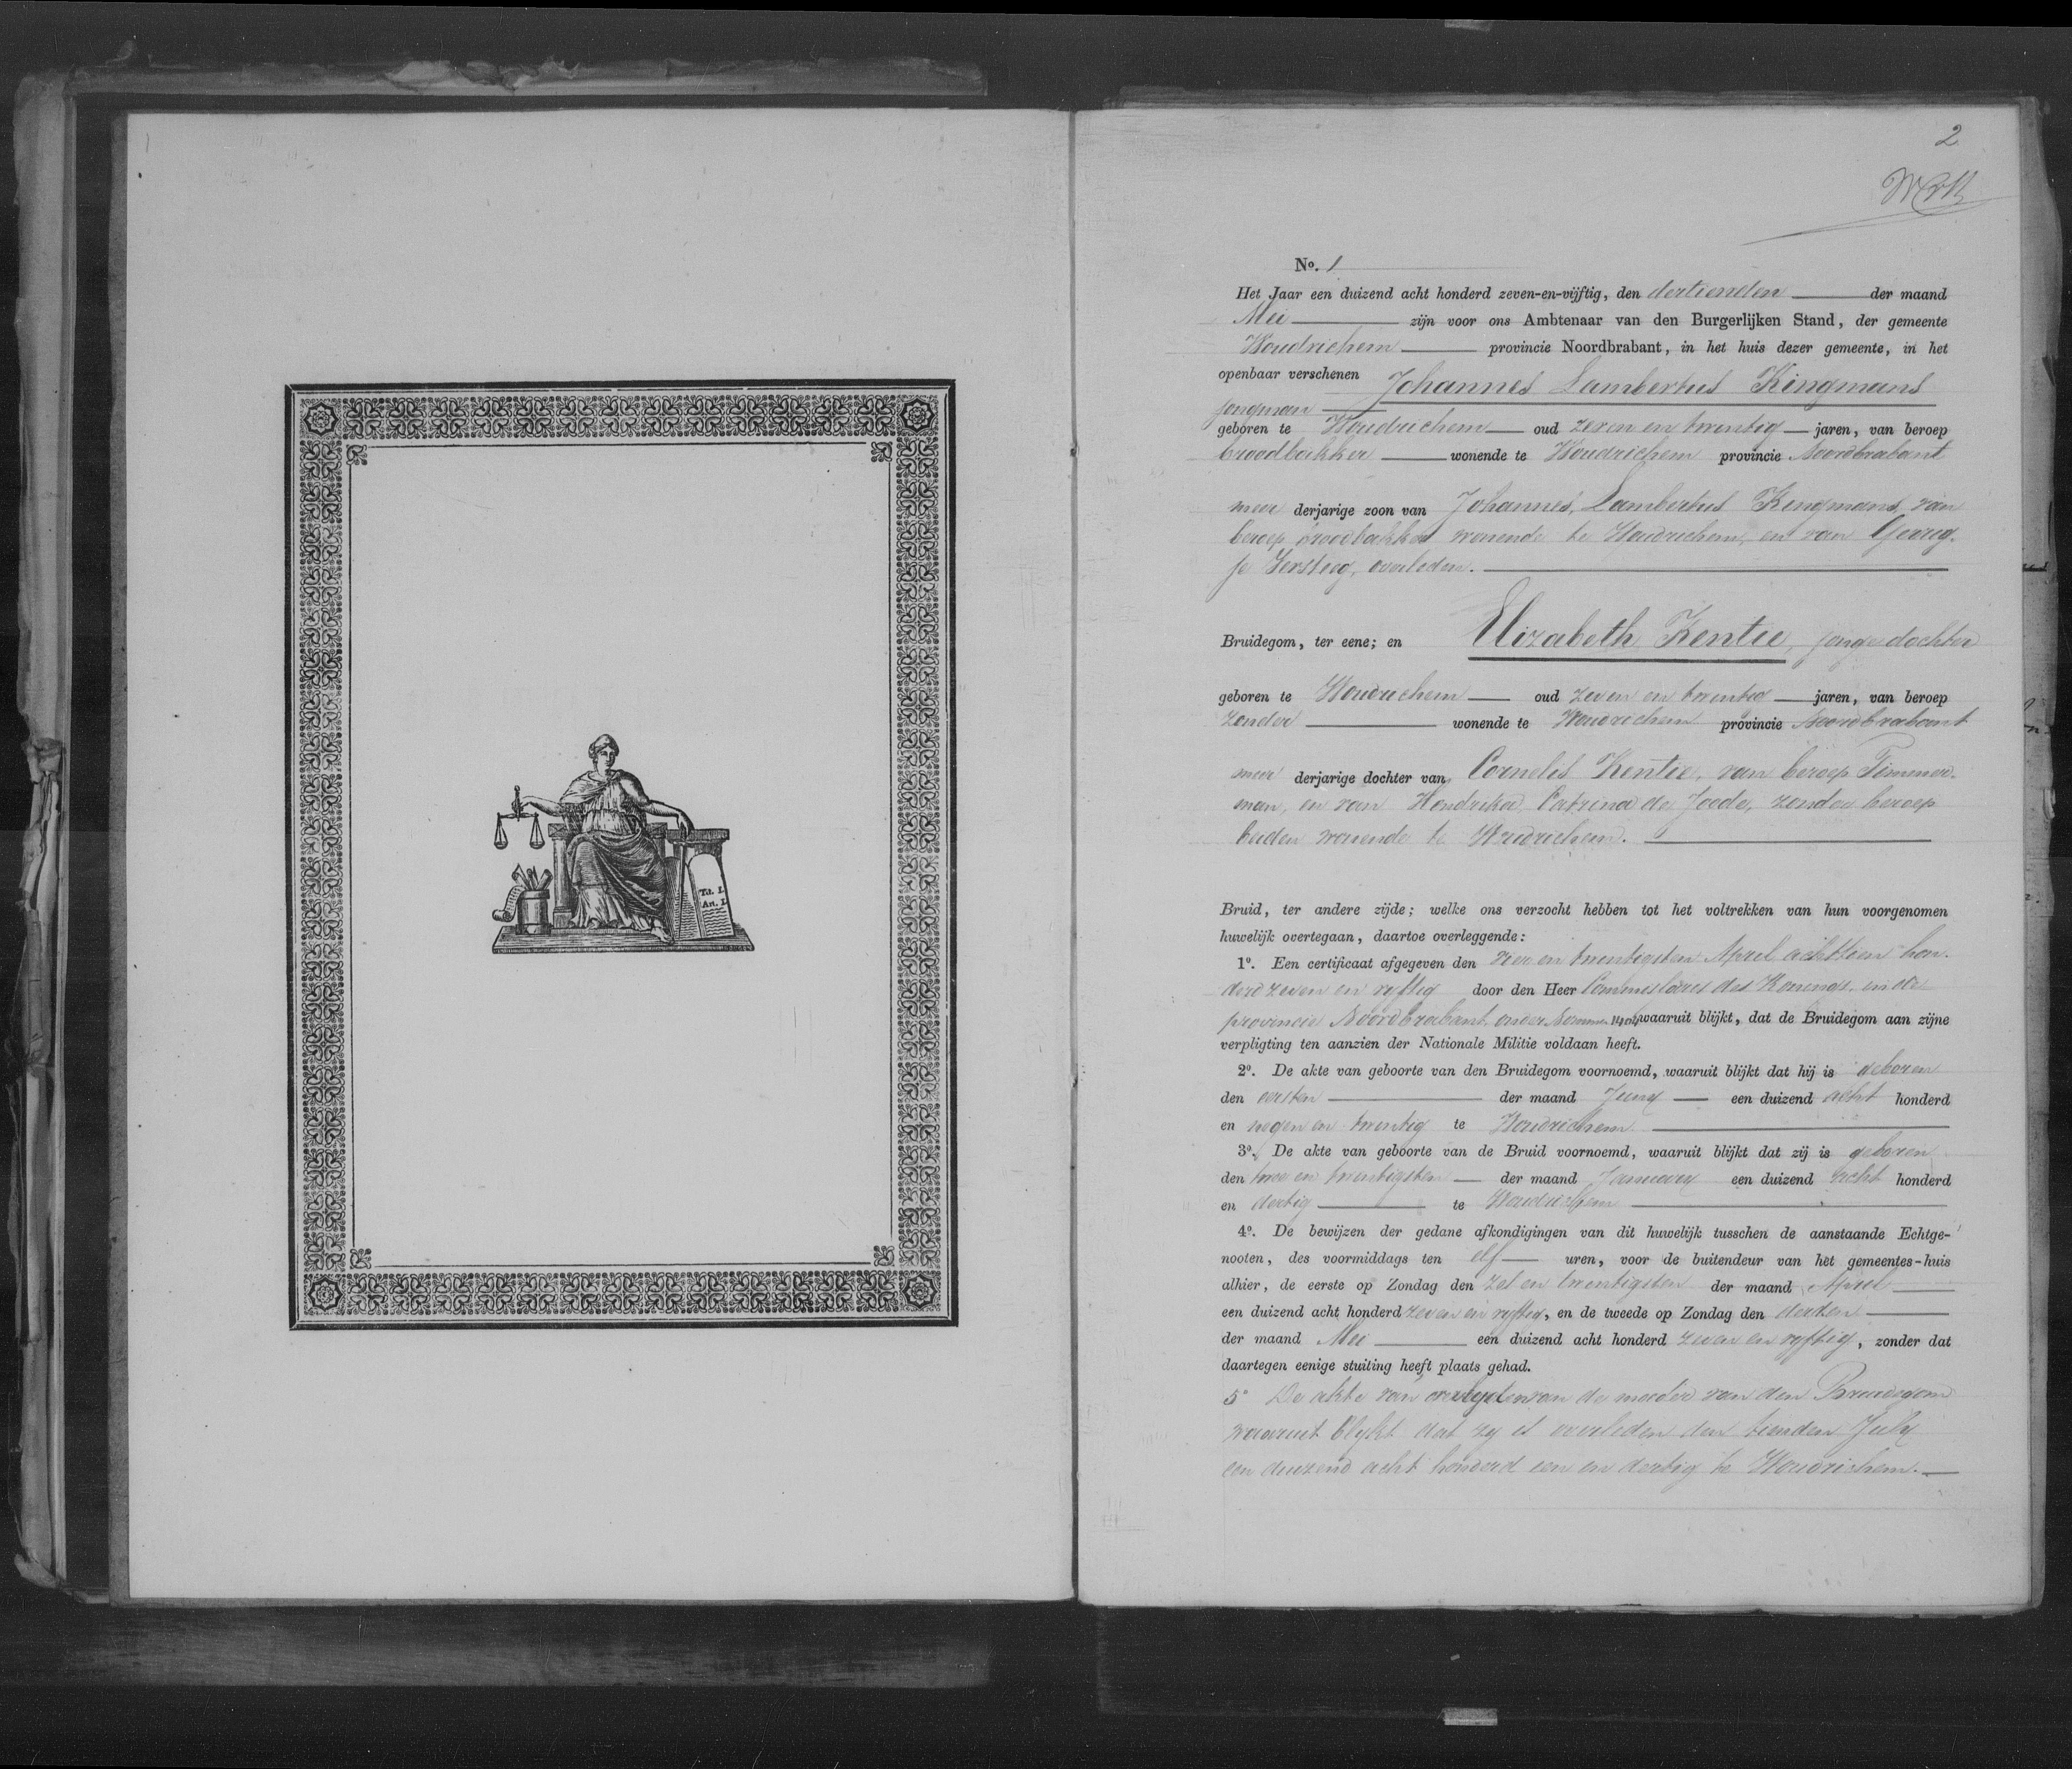 Tit. I.
Art. I.
2
No. 1
Het Jaar een duizend acht honderd zeven-en-vijftig, den dertienden der maand
Mei zijn voor ons Ambtenaar van den Burgerlijken Stand, der gemeente
Woudrichem provincie Noordbrabant, in het huis dezer gemeente, in het
openbaar verschenen Johannes Lambertus Kingmans
jongman
geboren te Woudrichem oud zeven en twintig jaren, van beroep
broodbakker wonende te Woudrichem provincie Noordbrabant
meer derjarige zoon van Johannes Lambertus Kingmans, van
beroep broodbakker wonende te Woudrichem, en van Gerrig-
je Versteeg, overleden.
Bruidegom, ter eene; en Elizabeth Kentie, jonge dochter
geboren te Woudrichem oud zeven en twintig jaren, van beroep
zonder wonende te Woudrichem provincie Noordbrabant
meer derjarige dochter van Cornelis Kentie, van beroep Timmer-
man, en van Hendrika Catrina de Joode, zonder beroep
beiden wonende te Woudrichem.
Bruid, ter andere zijde; welke ons verzocht hebben tot het voltrekken van hun voorgenomen
huwelijk overtegaan, daartoe overleggende:
1o. Een certificaat afgegeven den vier en twintigsten April achttien hon-
derd zeven en vyftig door den Heer Commissaris des Konings, in de
provincie Noordbrabant onder Nommer waaruit blijkt, dat de Bruidegom aan zijne
verpligting ten aanzien der Nationale Militie voldaan heeft.
2o. De akte van geboorte van den Bruidegom voornoemd, waaruit blijkt dat hij is geboren
den eersten der maand Juny een duizend acht honderd
en negen en twintig te Woudrichem
3o. De akte van geboorte van de Bruid voornoemd, waaruit blijkt dat zij is geboren
den twee en twintigsten der maand January een duizend acht honderd
en dertig te Woudrichem
4o. De bewijzen der gedane afkondigingen van dit huwelijk tusschen de aanstaande Echtge-
nooten, des voormiddags ten elf uren, voor de buitendeur van het gemeentes-huis
alhier, de eerste op Zondag den zes en twintigsten der maand April
een duizend acht honderd zeven en vyftig, en de tweede op Zondag den derden
der maand Mei een duizend acht honderd zeven en vyftig, zonder dat
daartegen eenige stuiting heeft plaats gehad.
5o De akte van overlyden van de moeder van den Bruidegom
waaruit blykt dat zy is overleden den tienden July
een duizend acht honderd een en dertig te Woudrichem.